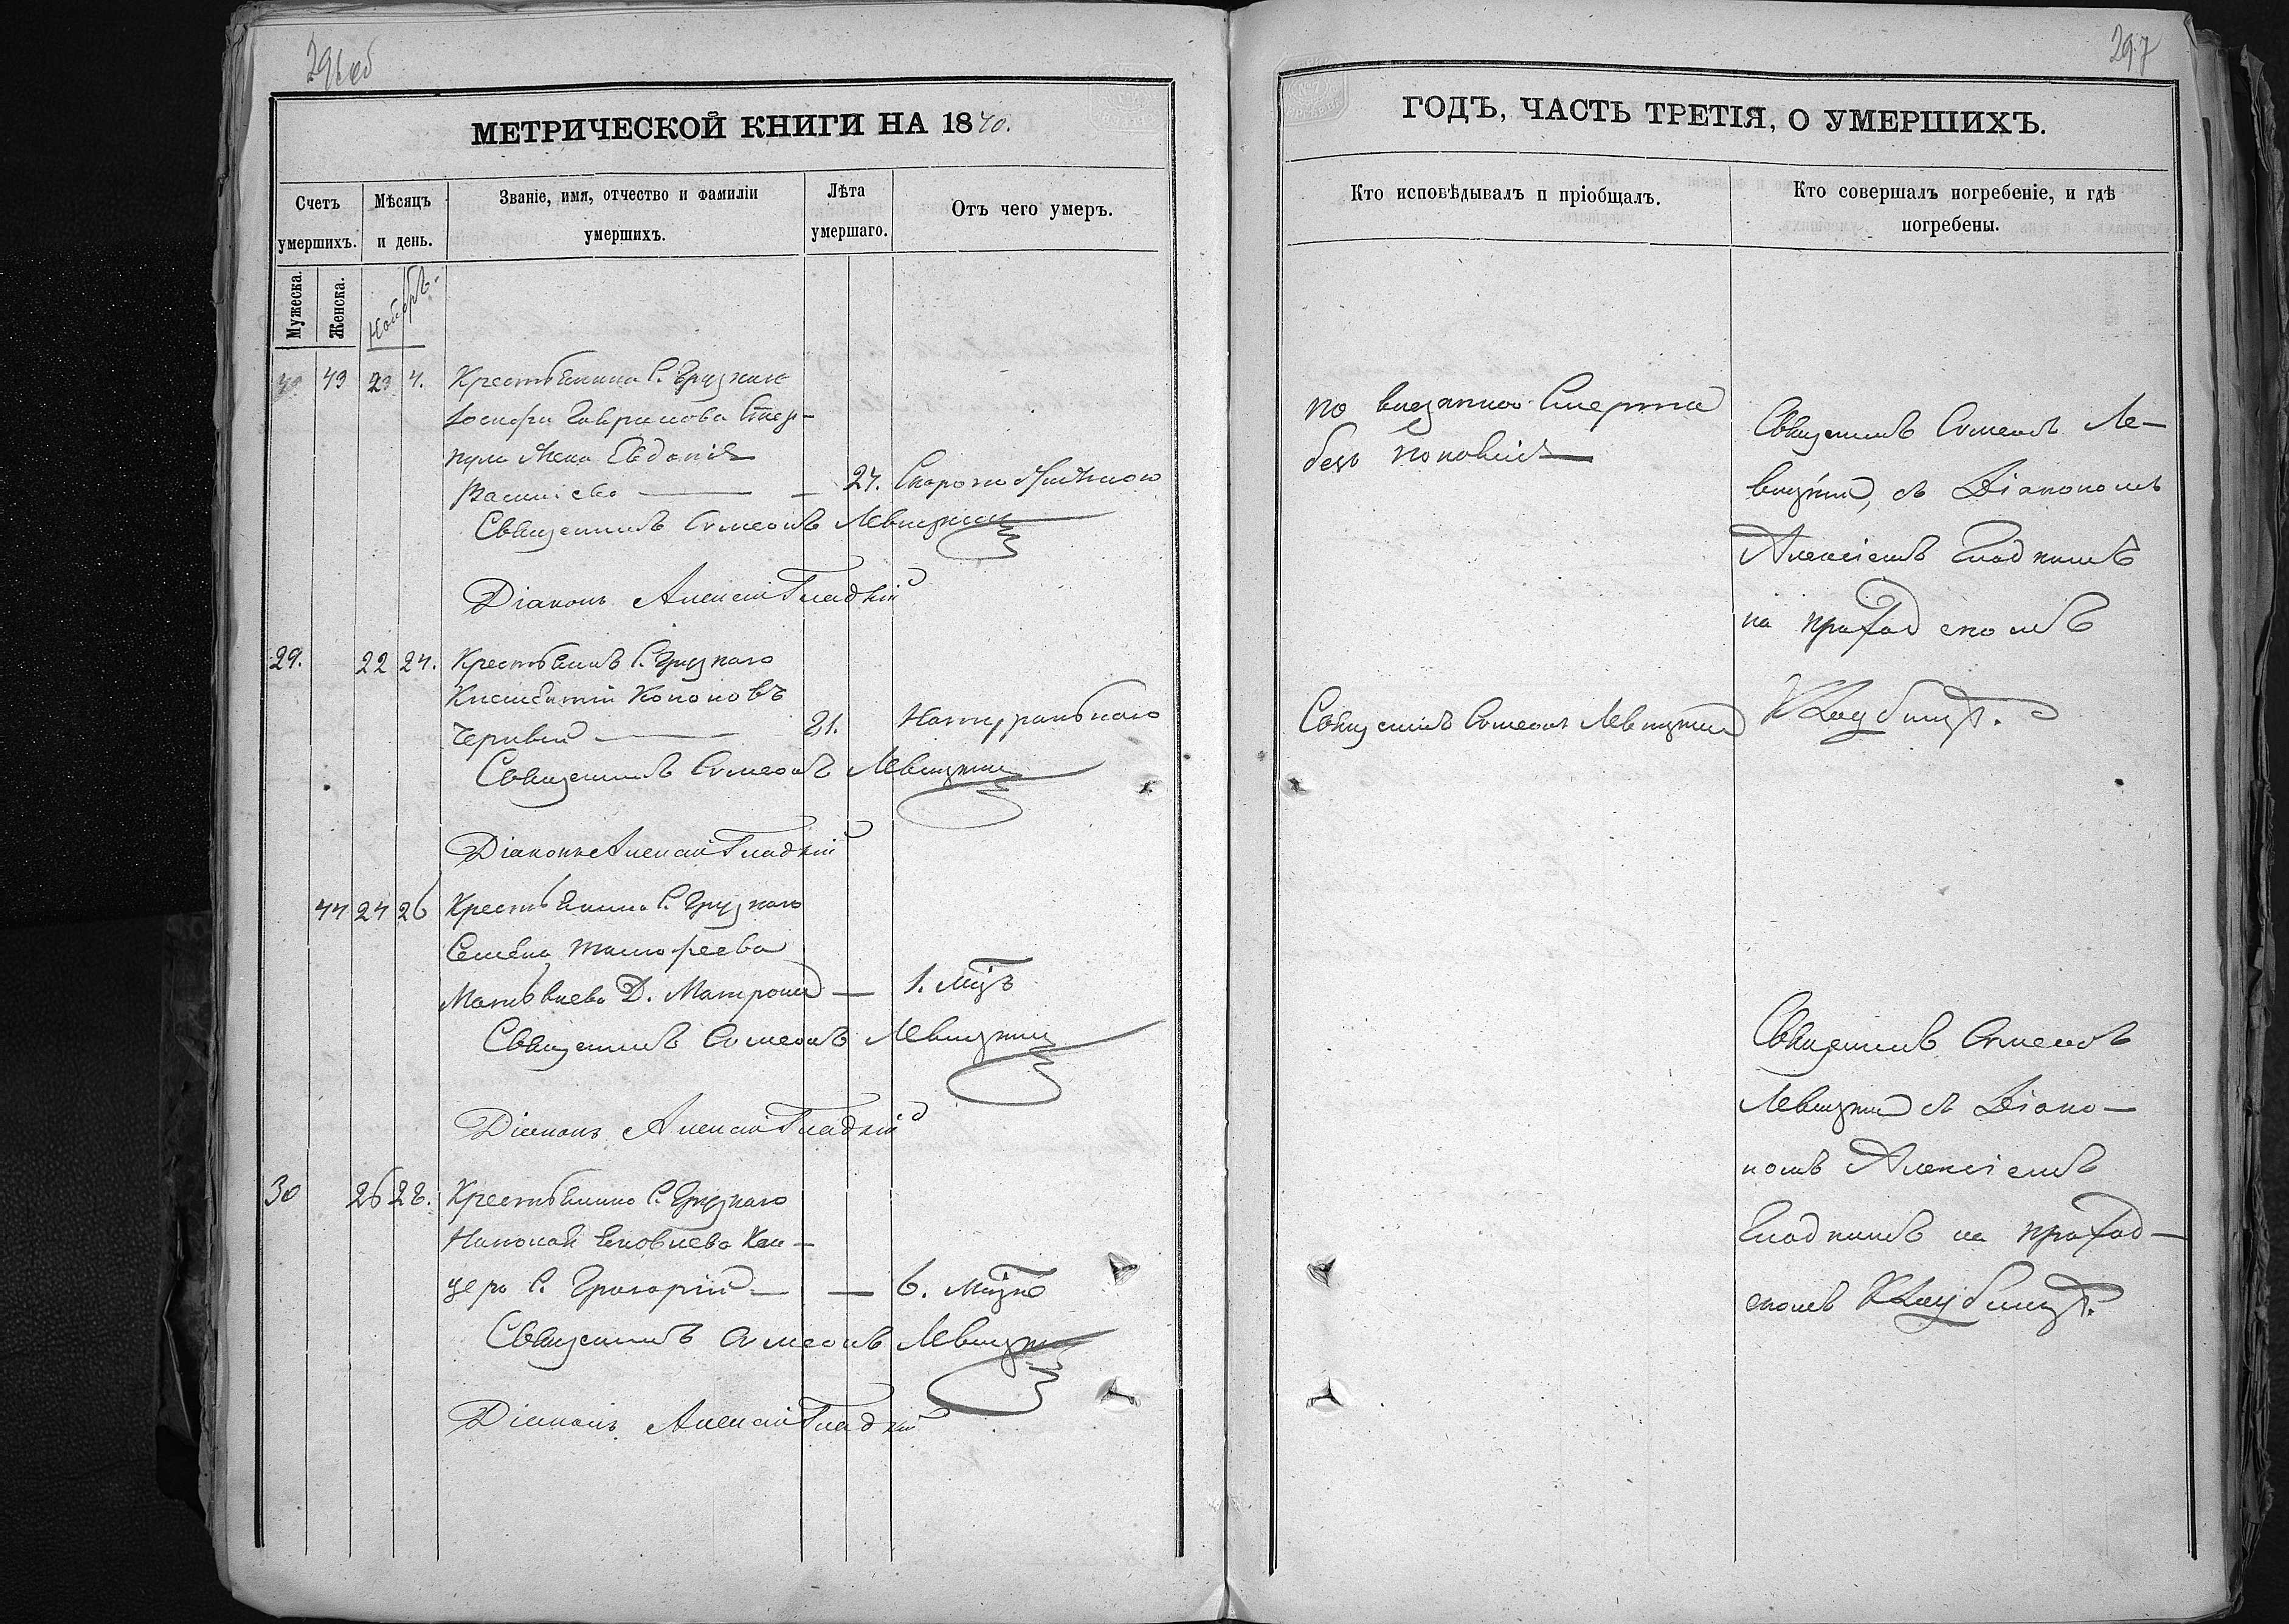 297
МЕТРИЧЕСКОЙ КНИГИ НА 1870.
Счетъ умершихъ.
Мѣсяцъ и день.
Званіе, имя, отчество и фамиліи умершихъ.
Лѣта умершаго.
Отъ чего умеръ.
Мужеска.
Женска.
Ноябрь.
43 23
Крестьянина С. Грузкаго
Іосифа Гаврилова
жена Евдокія
27.
Священникъ Симеонъ Левицкій
Діаконъ Алексій Гладкій
29. 22 24. Крестьянинъ С. Грузкаго
Кононовъ
81. Натуральною
Священникъ Симеонъ Левицкій
Діаконъ Алексій Гладкій
44 24 26 Крестьянина С. Грузкаго
Семена Тимофеева
Матвѣева Д. Матрона — 1. мць
Священникъ Симеонъ Левицкій
Діаконъ Алексій Гладкій
30 26 28. Крестьянина С. Грузкаго
Николая Яковлева Кан-
цера С. Григорій — — 6. мцвъ
Священникъ Симеонъ Левицкій
Діаконъ Алексій Гладкій
ГОДЪ, ЧАСТЬ ТРЕТІЯ, О УМЕРШИХЪ.
Кто исповѣдывалъ и пріобщалъ.
Кто совершалъ погребеніе, и гдѣ погребены.
по внезапной смерти
безъ
Священникъ Симеонъ Левицкій
Священникъ Симеонъ Ле-
вицкій, съ Діакономъ
Алексіемъ Гладкимъ
на приходскомъ
кладбищѣ.
Священникъ Симеонъ
Левицкій съ Діако-
номъ Алексіемъ
Гладкимъ на приход-
скомъ кладбищѣ.